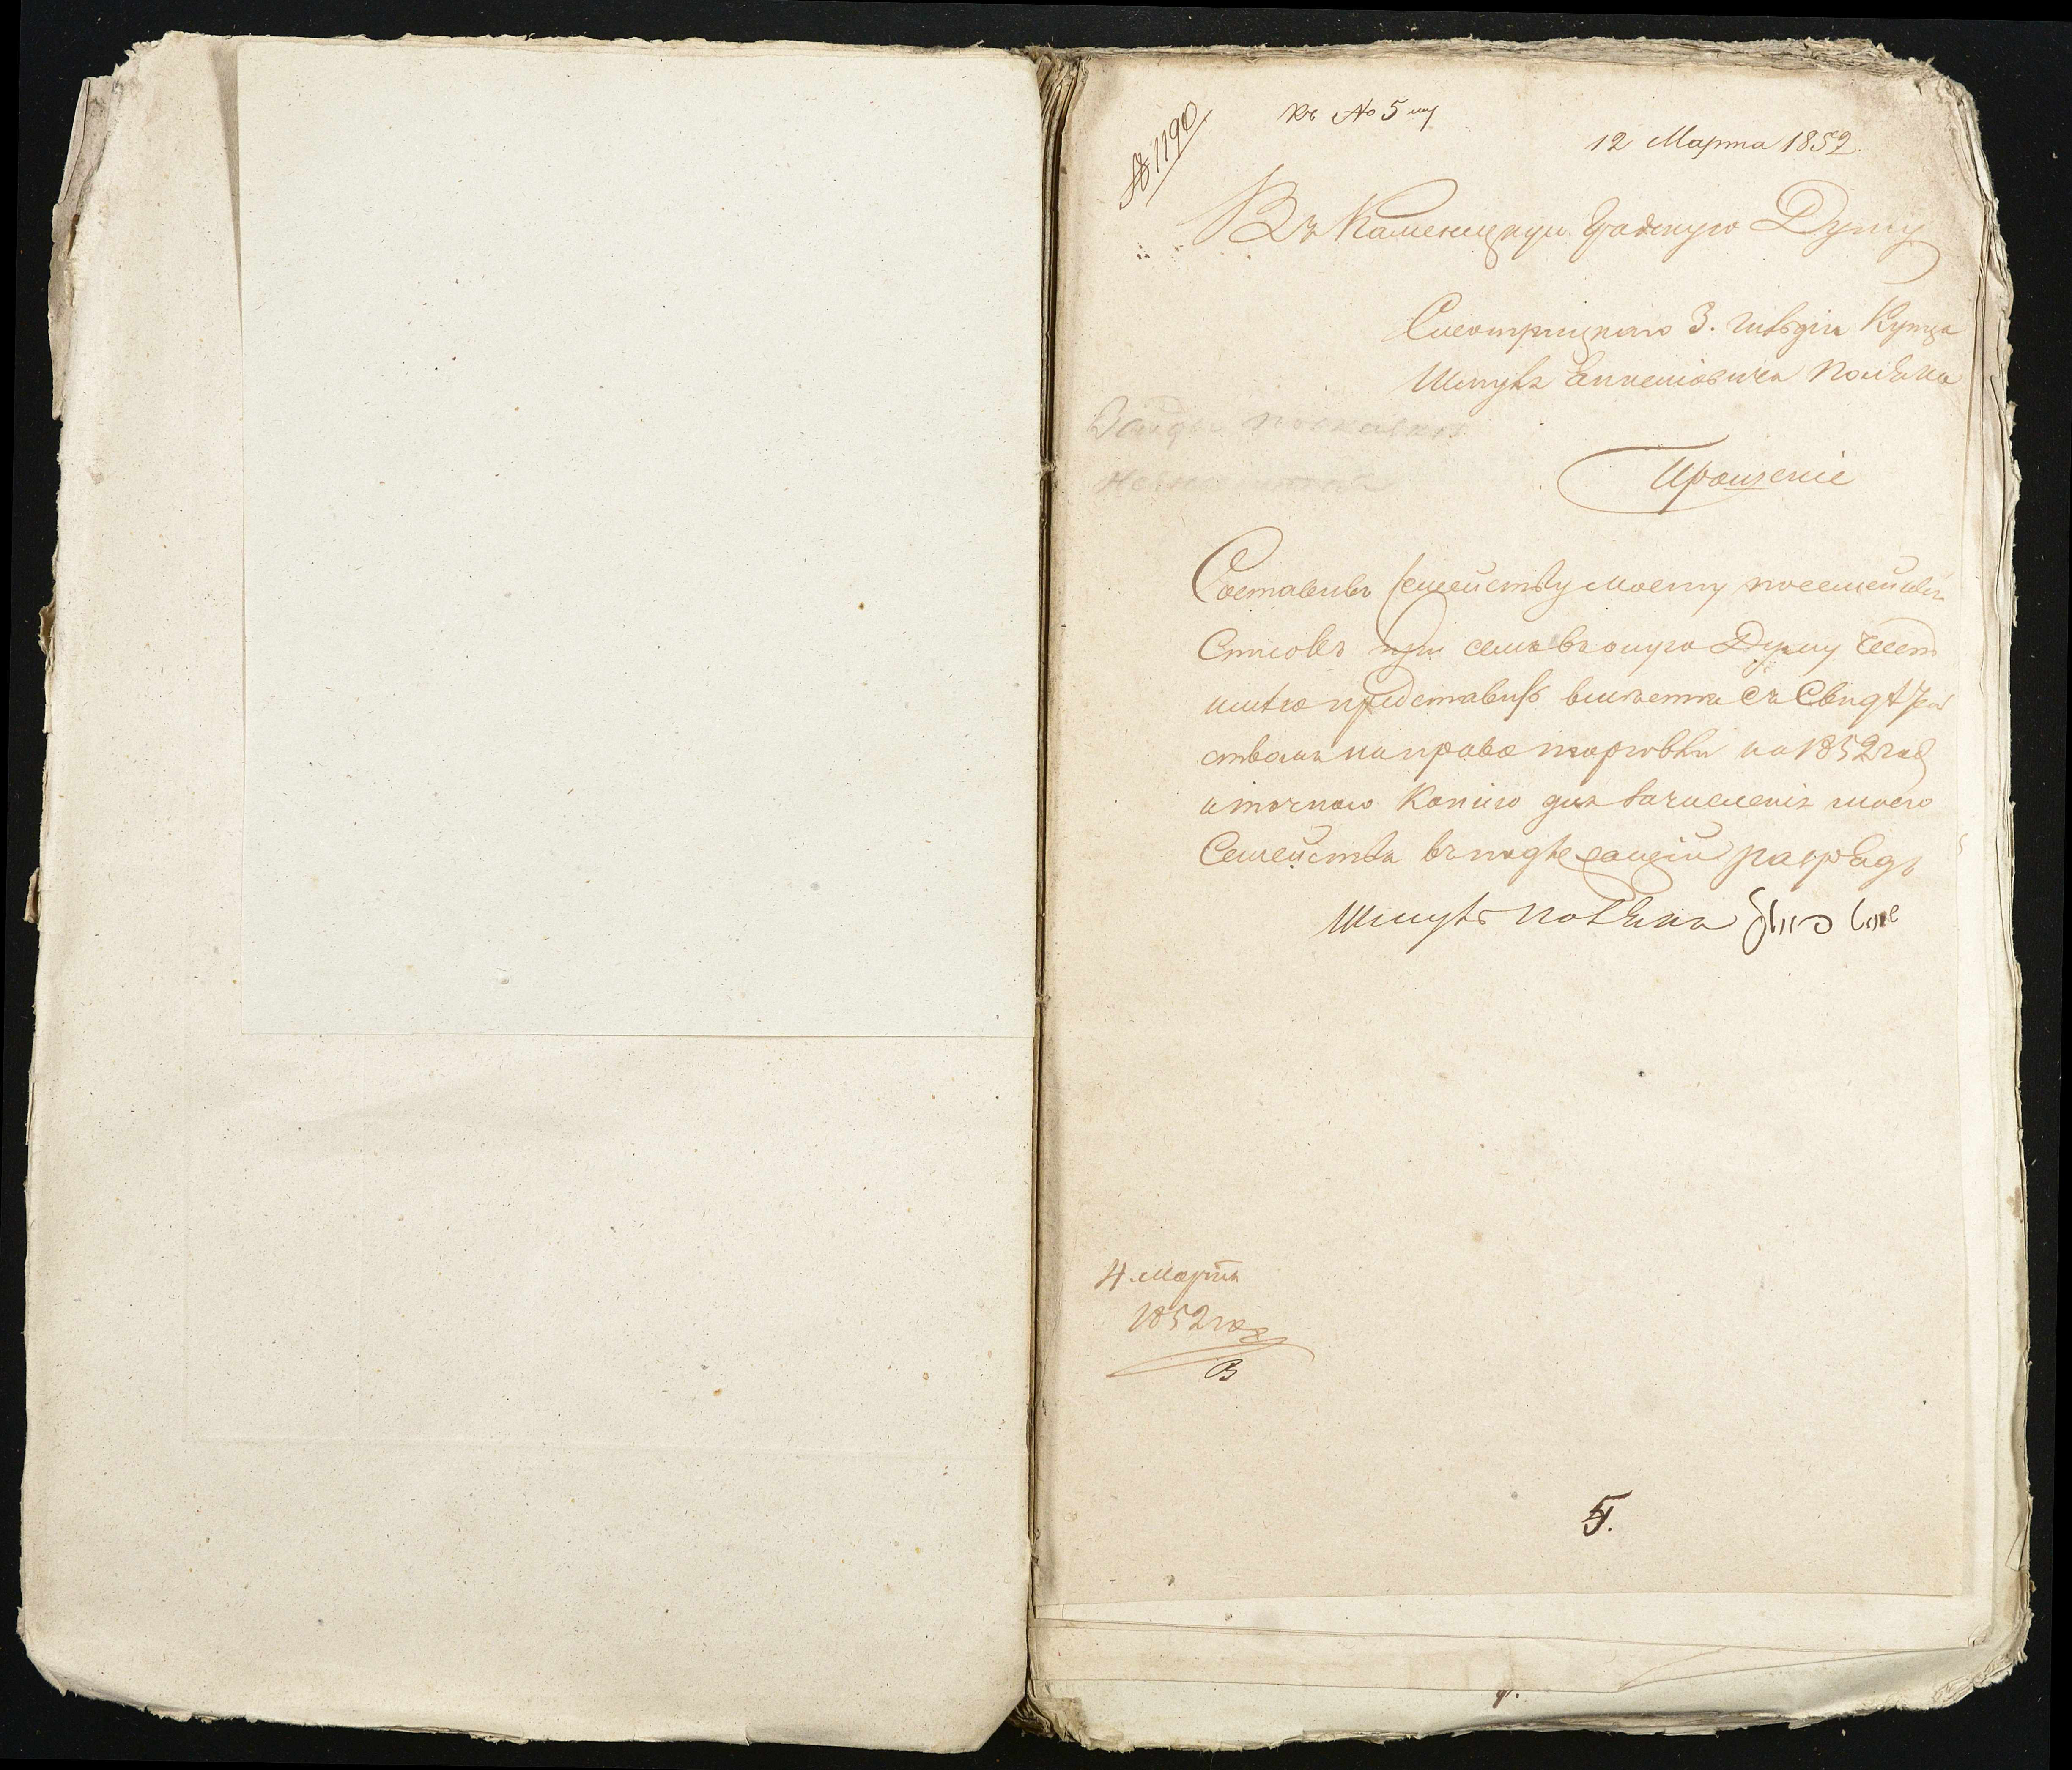 № 1190
Къ № 5му
12 Марта 1852.
Въ Каменецкую Градскую Думу
Смотрицкаго 3. гильдіи Купца
Шмуля поляка
Прошеніе
Составивъ семейству моему посемейный
Списокъ при семъ въ оную Думу чест
имѣю представить вмѣсте съ Свидѣтель
ствомъ на право торговли на 1852 год
и точною Копіею для зачисленія моего
Семейства въ подлежащій разрядъ
Шмуль поляка
4 марта
1852 год
5.